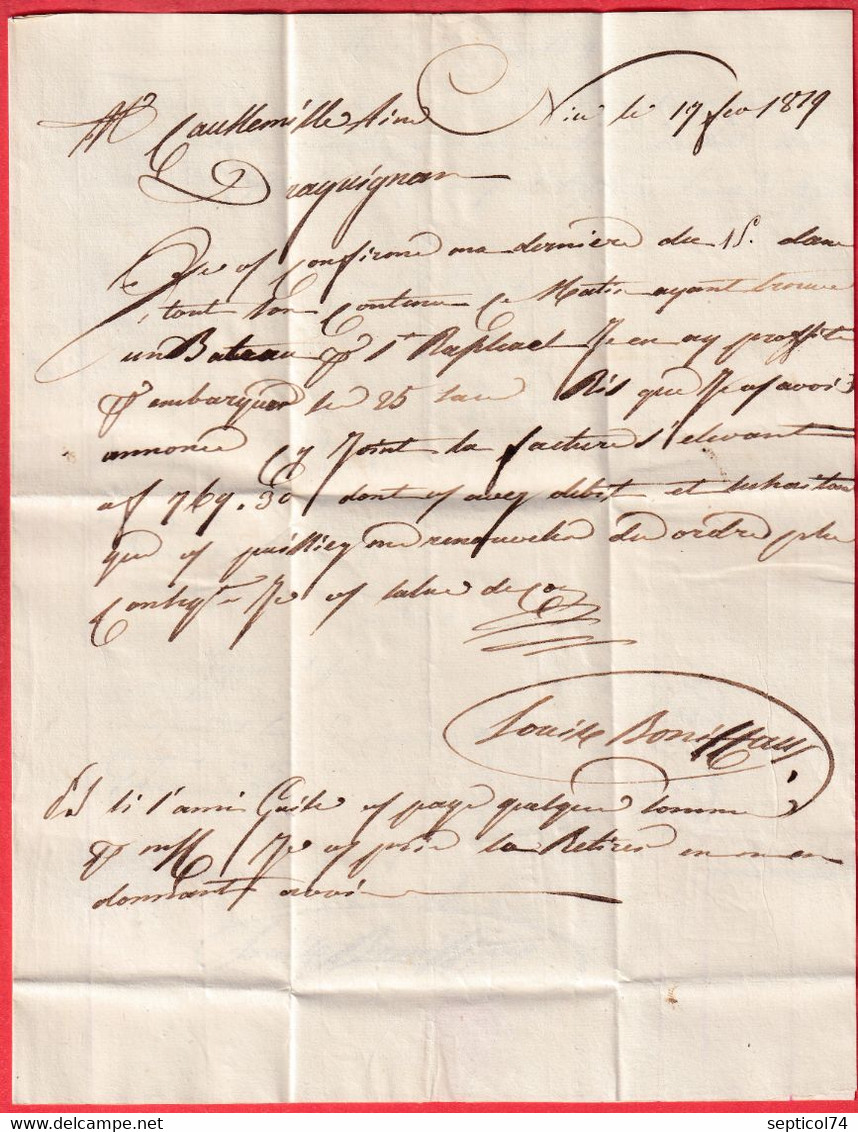 Mr Caussemille Ainé Nice le 19 fev 1819
Draguignan
Je vs Confirme ma derniere du 15. dans
tout son Contenu Ce Matin ayant trouvé
un Bateau pr St Raphael Je en ay proffité
pr embarquer les 25 sacs Ris que Je vs avois
annoncé Cy Joint la facture s'elevant
a f 769.30 dont vs avez debit et suhaitan
que vs puissiez me renouveler du ordre plus
Je vs salue de
Louis Boniffassy
PS si l'ami vs paye quelque somme
pr mff Je vs prie la Retirer en m en
donnant avoi
septicol74